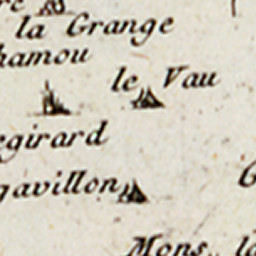 la Grange
hamou
le Vau
egirard
gavillon
Mons.. la